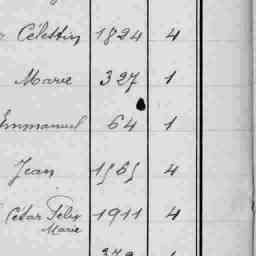 Célestin 1824 4
Marie 327 1
Emmanuel 64 1
Jean 1565 4
César Félix 1911 4
Marie